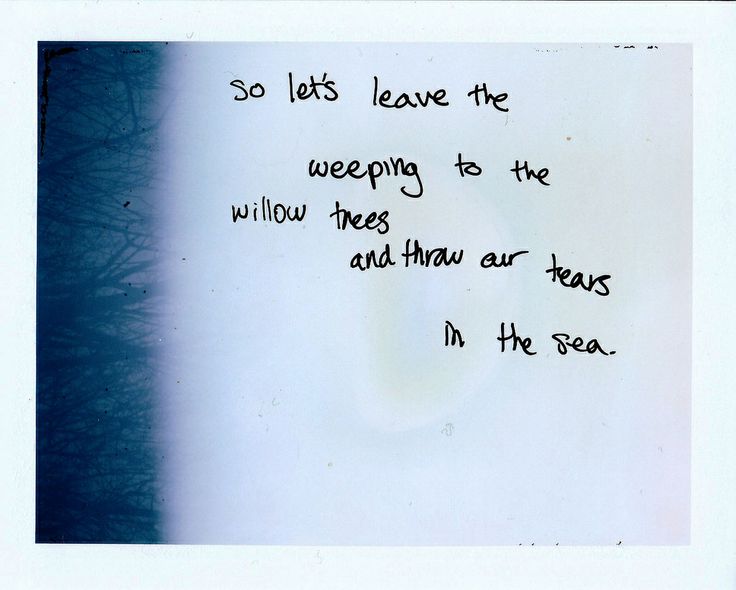 so let's leave the
weeping to the
willow trees
and throw our tears
in the sea.